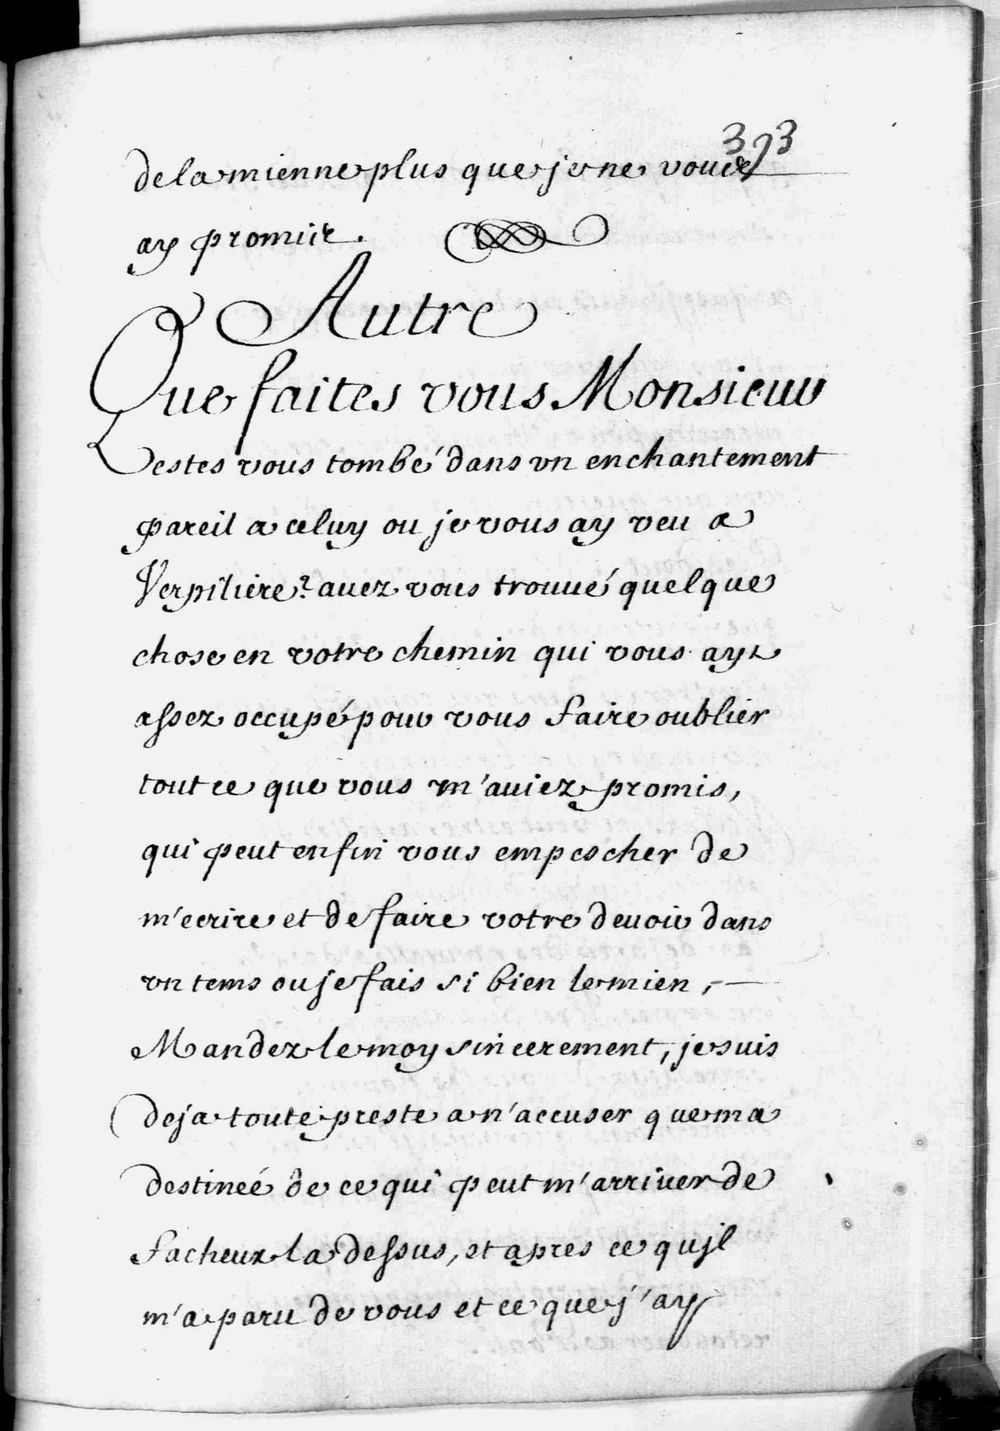 393
de la mienne plus que je ne vous
ay promis.
Autre
Que faites vous Monsieur
estes vous tombé dans vn enchantement
pareil a celuy ou je vous ay veu a
Verpiliere? auez vous trouué quelque
chose en votre chemin qui vous ayt
assez occupé pour vous faire oublier
tout ce que vous m'auiez promis,
qui peut enfin vous empescher de
m'ecrire et de faire votre deuoir dans
vn tems ou je fais si bien le mien,
Mandez le moy sincerement, je suis
deja toute preste a n'accuser que ma
destineé de ce qui peut m'arriuer de
facheux la dessus, et apres ce qujl
m'a paru de vous et ce que j'ay